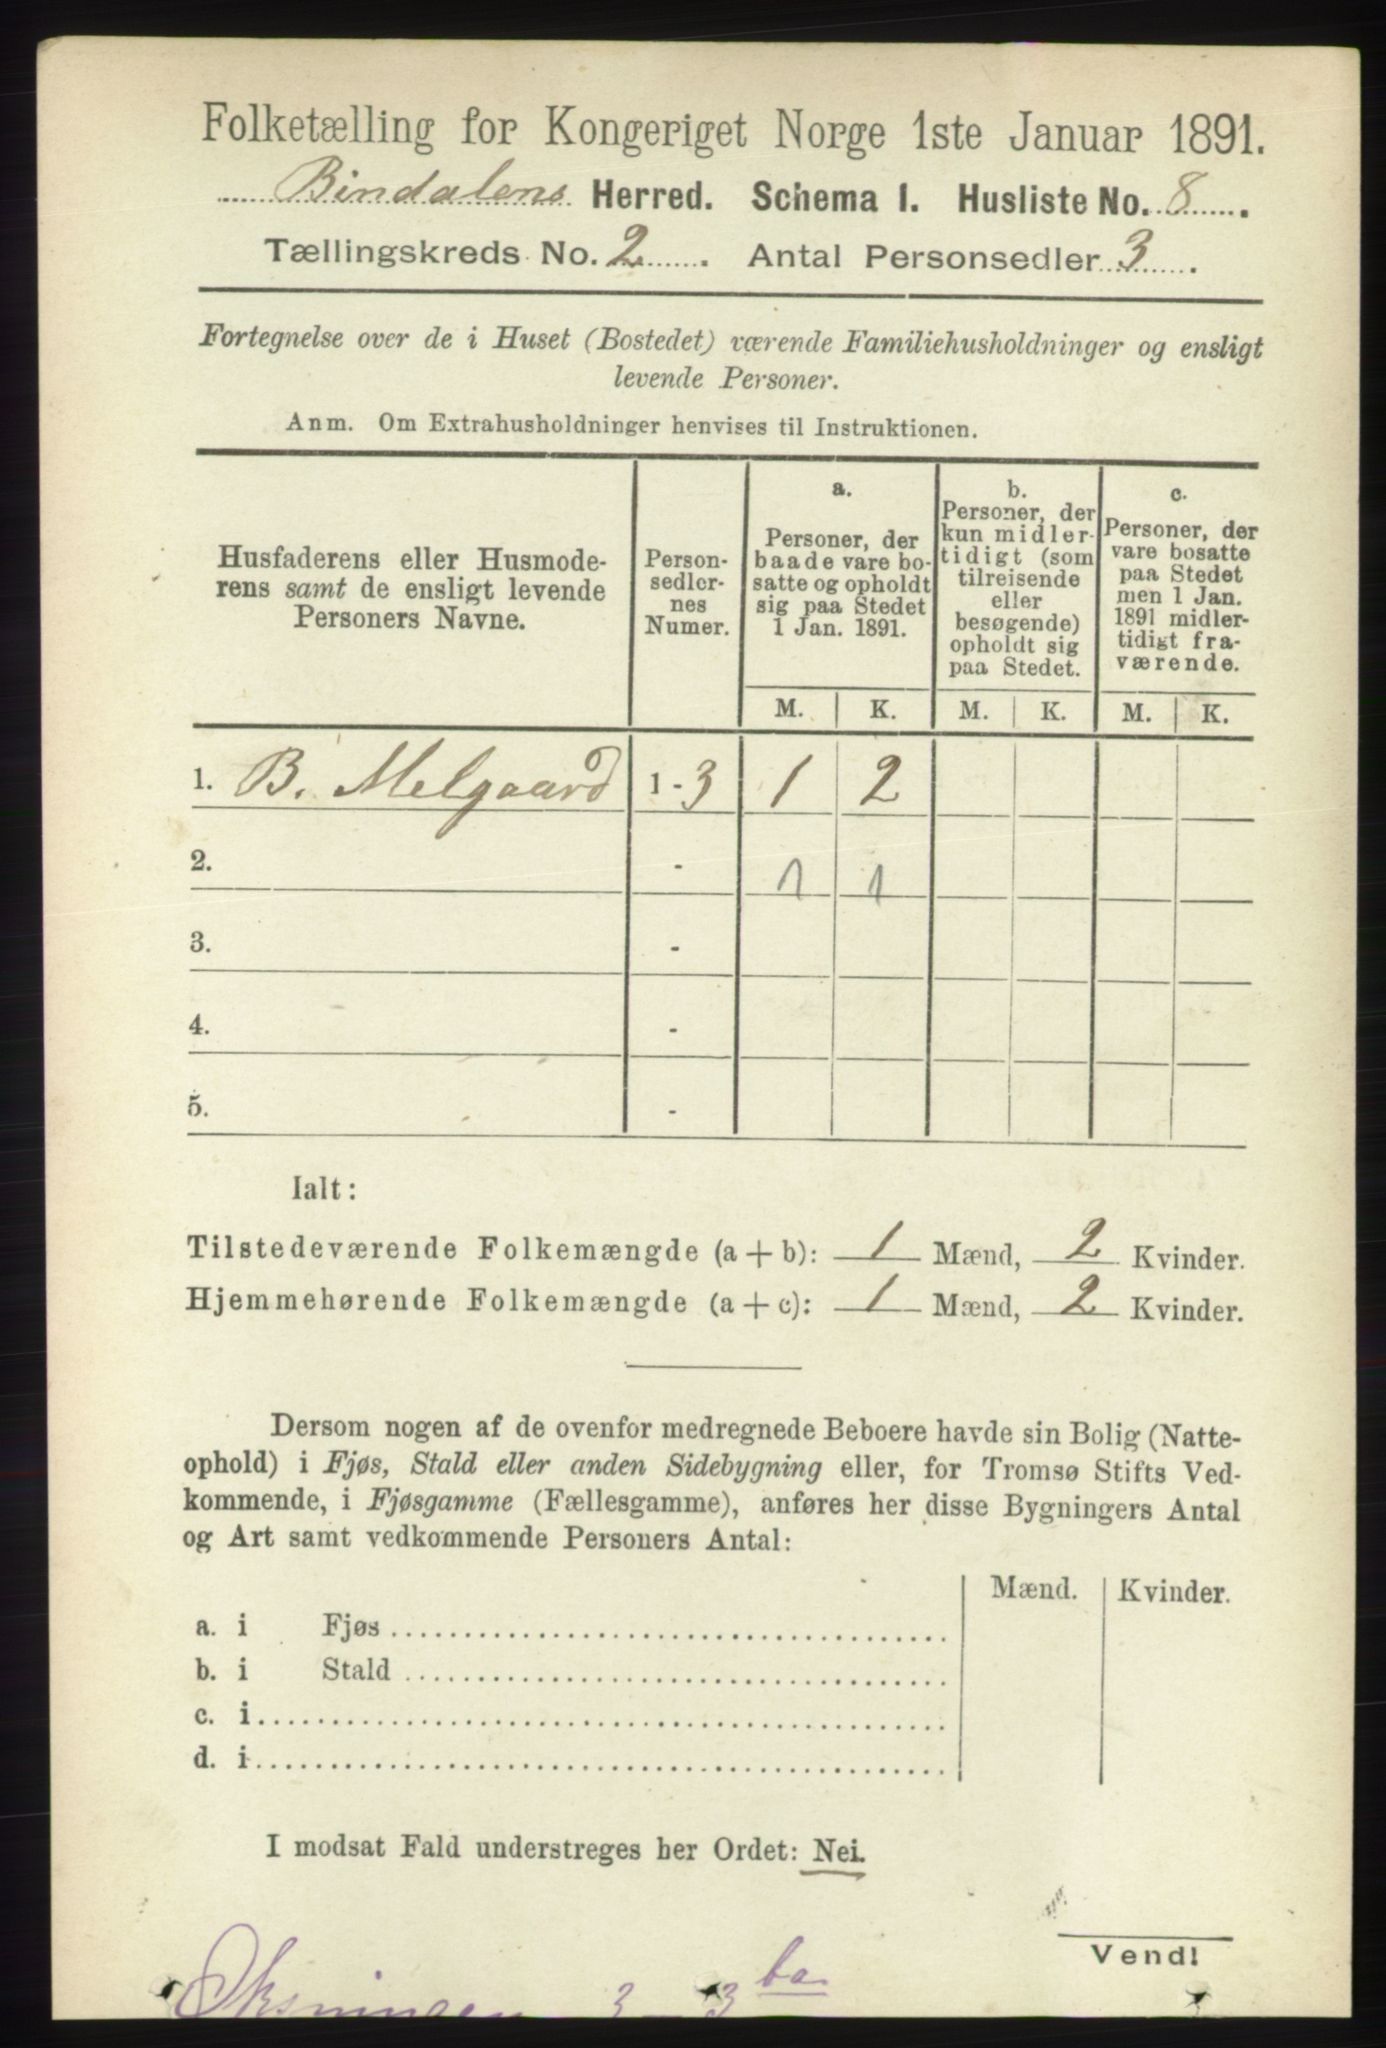 Folketælling for Kongeriget Norge 1ste Januar 1891.
Bindalens Herred. Schema I. Husliste No. 8.
Tællingskreds No. 2. Antal Personsedler 3.
Fortegnelse over de i Huset (Bostedet) værende Familiehusholdninger og ensligt
levende Personer.
Anm. Om Extrahusholdninger henvises til Instruktionen.
Husfaderens eller Husmode-
rens samt de ensligt levende
Personers Navne.
Person-
sedler-
nes
Numer.
a.
Personer, der
baade vare bo-
satte og opholdt
sig paa Stedet
1 Jan. 1891.
b.
Personer, der
kun midler-
tidigt (som
tilreisende
eller
besøgende)
opholdt sig
paa Stedet.
c.
Personer, der
vare bosatte
paa Stedet
men 1 Jan.
1891 midler-
tidigt fra-
værende.
M. K. M. K. M. K.
1. B. Melgaard 1 - 3 1 2
2. - 1 1
3. -
4. -
5. -
Ialt:
Tilstedeværende Folkemængde (a + b): 1 Mænd, 2 Kvinder.
Hjemmehørende Folkemængde (a + c): 1 Mænd, 2 Kvinder.
Dersom nogen af de ovenfor medregnede Beboere havde sin Bolig (Natte-
ophold) i Fjøs, Stald eller anden Sidebygning eller, for Tromsø Stifts Ved-
kommende, i Fjøsgamme (Fællesgamme), anføres her disse Bygningers Antal
og Art samt vedkommende Personers Antal:
Mænd. Kvinder.
a. i Fjøs
b. i Stald
c. i
d. i
I modsat Fald understreges her Ordet: Nei.
Vend!
3 - 3 ba